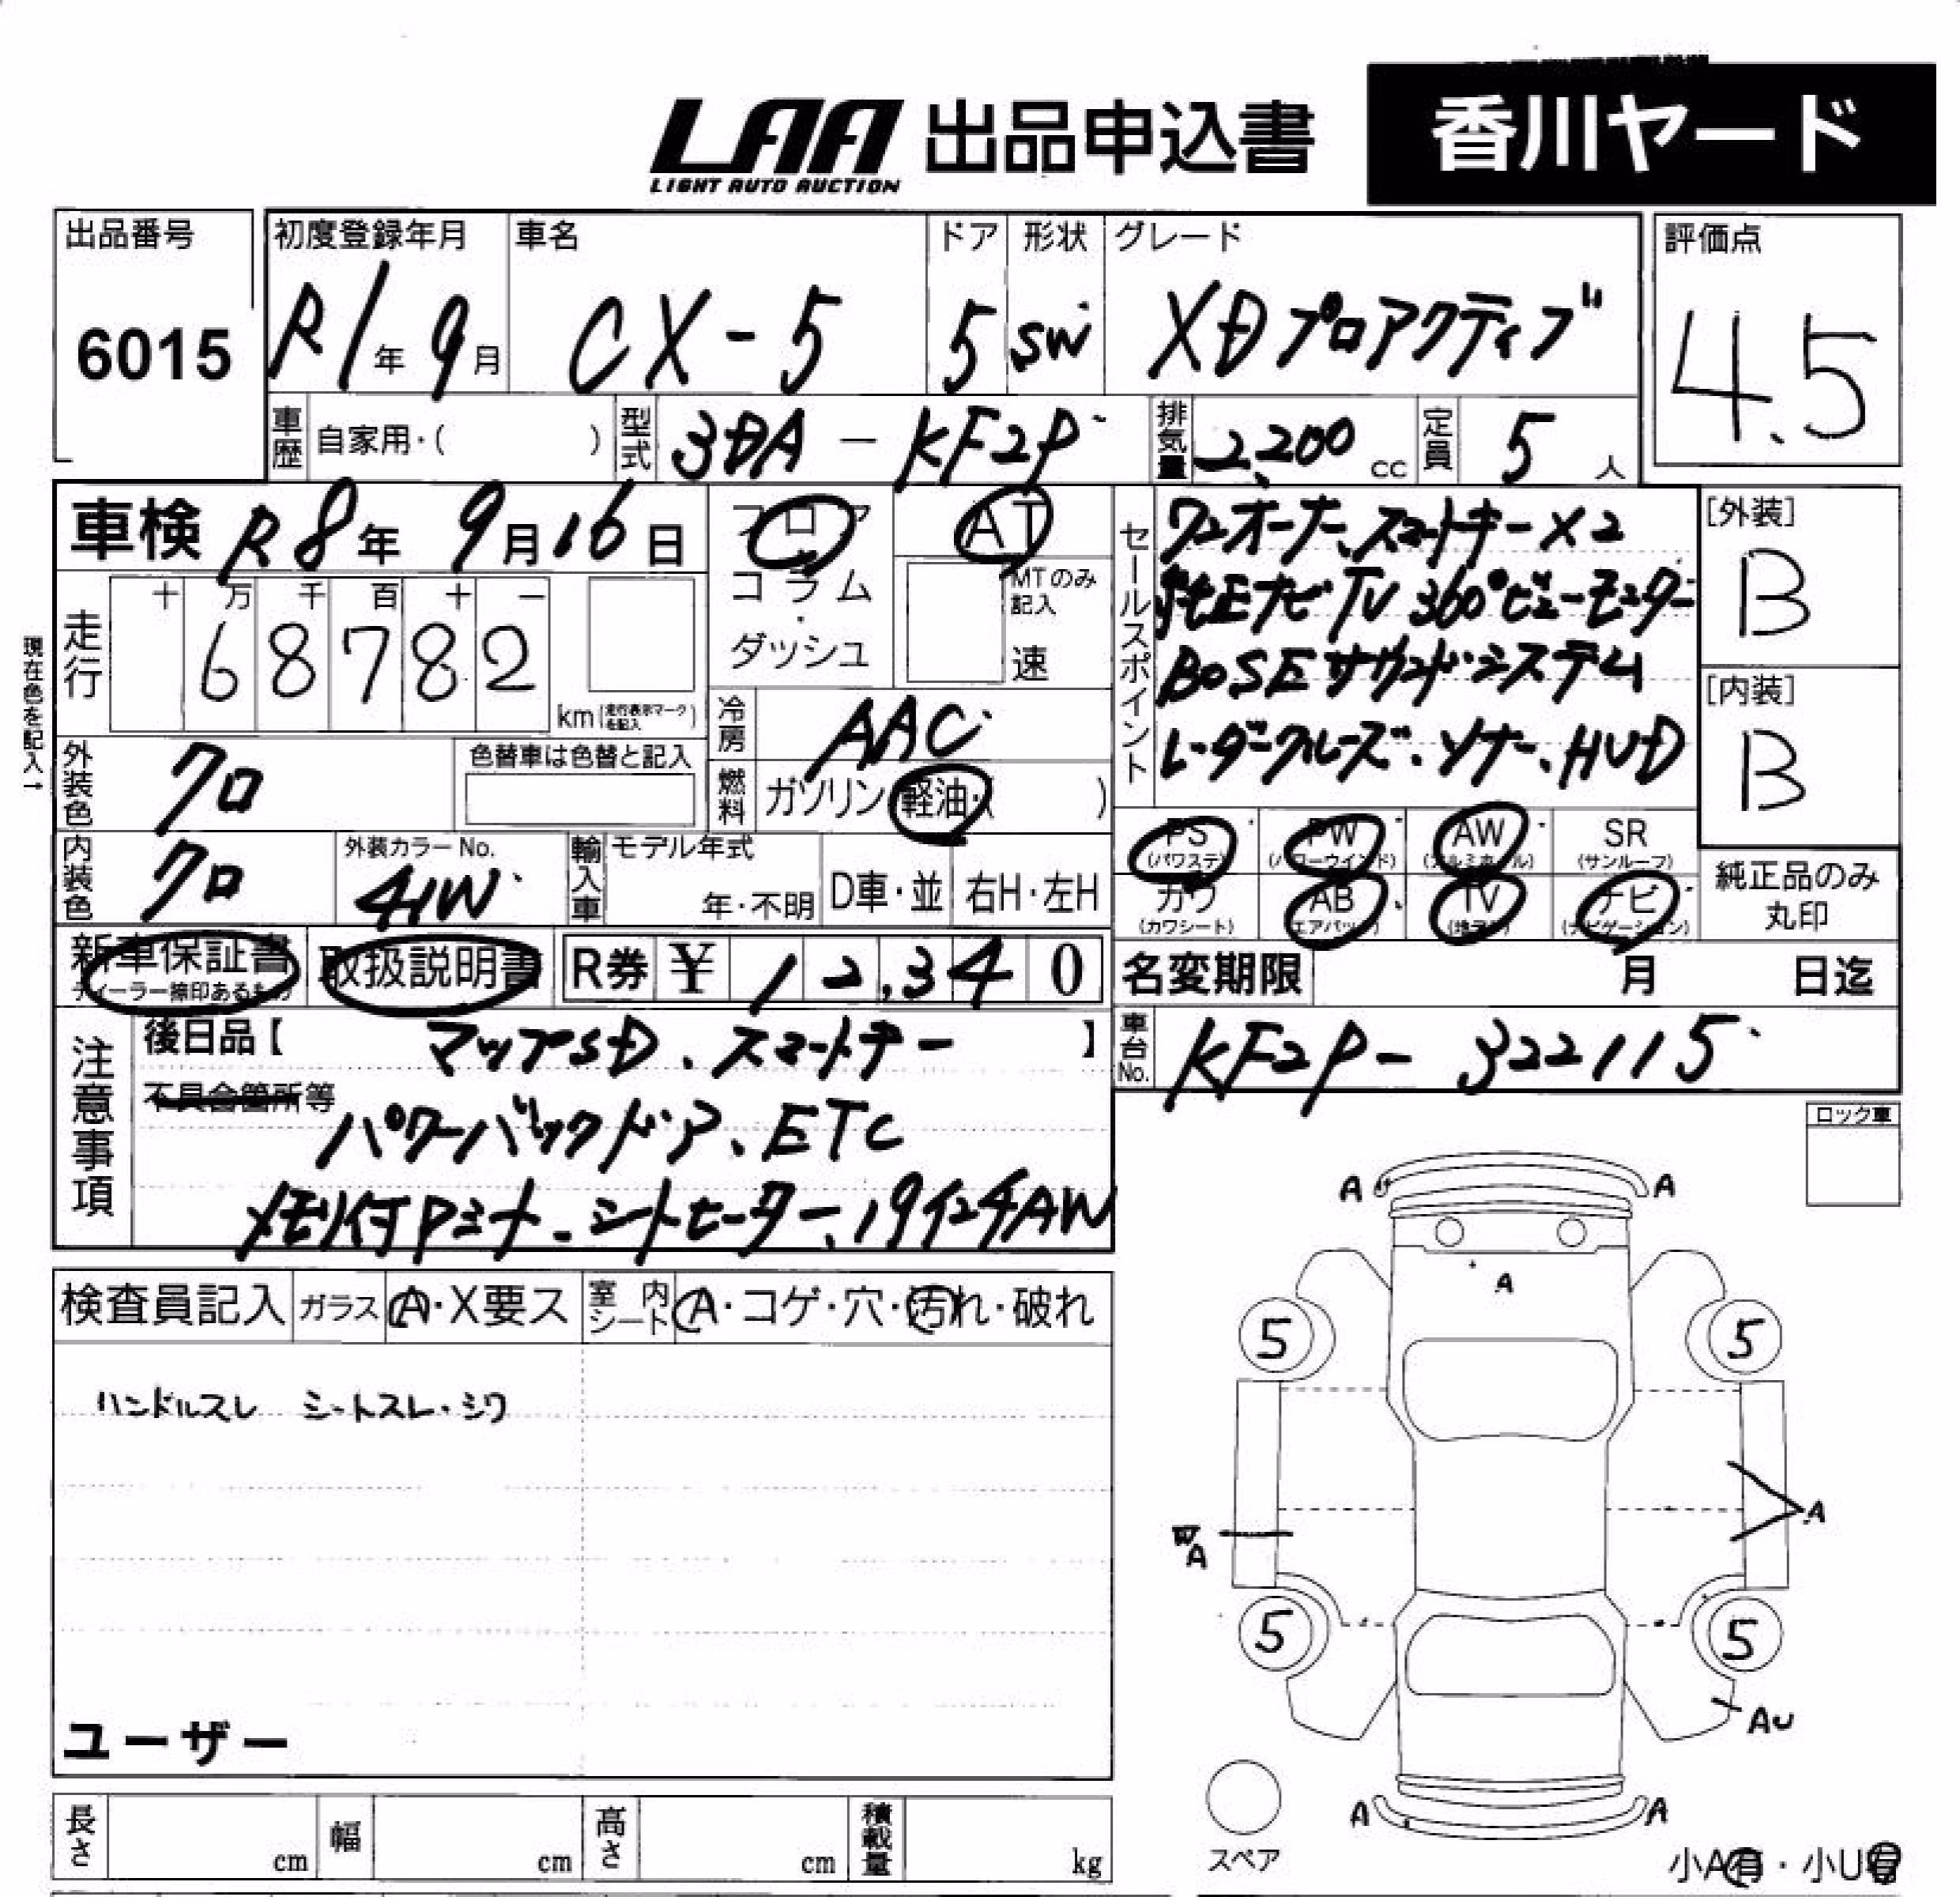 LAA 出品申込書 香川ヤード
LIGHT AUTO AUCTION
出品番号 初度登録年月 車名 ドア 形状 グレード 評価点
6015 R1年 9月 CX-5 5 SW XDプロアクティブ 4.5
車歴 自家用・( ) 型式 3DA-KF2P 排気量 2,200 cc 定員 5 人
車検 R8年 9月16日
フロア・コラム・ダッシュ
AT
MTのみ記入
速
セールスポイント
ワンオーナー、スマートキー×2
純正ナビTV 360°ビューモニター
BOSEサウンドシステム
レーダークルーズ、ソナー、HUD
[外装]
B
[内装]
B
現在色を記入→
走行 十 万 千 百 十 一
68782
km(走行表示マークを記入)
冷房 AAC
燃料 ガソリン・軽油・( )
外装色 クロ
色替車は色替と記入
内装色 クロ
外装カラーNo.
41W
輸入車 モデル年式
年・不明 D車・並 右H・左H
PS (パワステ) PW (パワーウインド) AW (アルミホイル) SR (サンルーフ)
カワ (カワシート) AB (エアバッグ) TV (地デジ) ナビ (ナビゲーション)
純正品のみ
丸印
新車保証書 取扱説明書 R券 ¥ 12,340
ディーラー捺印あるもの
名変期限 月 日迄
車台No. KF2P-322115
注意事項
後日品【 マップSD、スマートキー 】
不具合箇所等
パワーバックドア、ETC
メモリ付Pシート、シートヒーター、19インチAW
ロック車
検査員記入 ガラス A・X要ス 室内シート A・コゲ・穴・汚れ・破れ
ハンドルスレ シートスレ・シワ
ユーザー
A A
A
5 5
A
W
A
5 5
AU
A A
スペア
小A有・小U有
長さ cm 幅 cm 高さ cm 積載量 kg